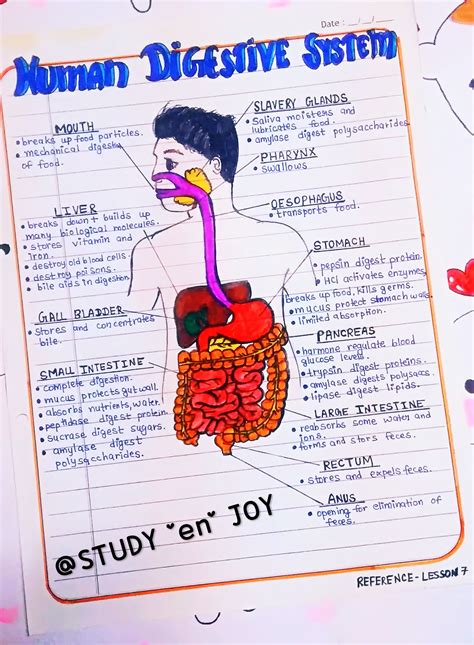 Date : __/__/__
HUMAN DIGESTIVE SYSTEM
MOUTH
• breaks up food particles.
• mechanical digestion
of food.
SLAVERY GLANDS
• Saliva moisters and
lubricates food.
• amylase digest polysaccharides
PHARYNX
• swallows
OESOPHAGUS
• transports food.
LIVER
• breaks down + builds up
many biological molecules.
• stores vitamin and
iron.
• destroy old blood cells.
• destroy poisons.
• bile aids in digestion
STOMACH
• pepsin digest protein.
• HCl activates enzymes,
breaks up food, kills germs.
• mucus protect stomach wall.
• limited absorption.
GALL BLADDER
• Stores and concentrates
bile.
PANCREAS
• harmone regulate blood
glucose level.
• trypsin digest proteins.
• amylase digests polysacs.
• lipase digest lipids.
SMALL INTESTINE
• complete digestion.
• mucus protects gut wall.
• absorbs nutrients, water.
• peptidase digest protein.
• sucrase digest sugars.
• amylase digest
polysaccharides.
LARGE INTESTINE
• reabsorbs some water and
ions.
• forms and stors feces.
RECTUM
• stores and expels feces.
ANUS
• opening for elimination of
feces.
@STUDY "en" JOY
REFERENCE - LESSON 7